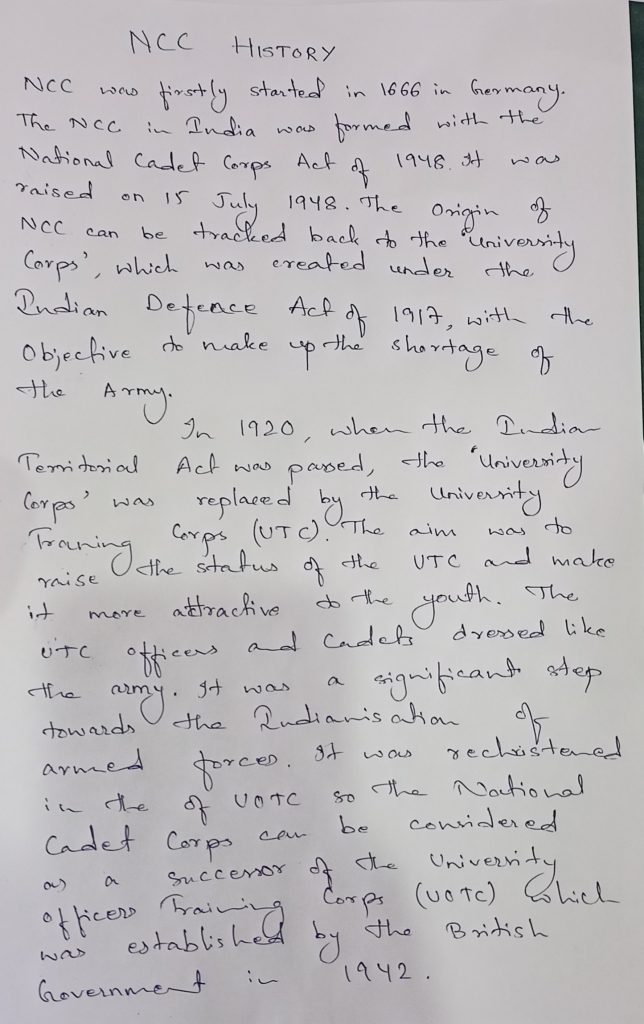 NCC HISTORY
NCC was firstly started in 1666 in Germany.
The NCC in India was formed with the
National Cadet Corps Act of 1948. It was
raised on 15 July 1948. The Origin of
NCC can be tracked back to the "University
Corps', which was created under the
Indian Defence Act of 1917, with the
Objective to make up the shortage of
the Army.
In 1920, when the Indian
Territorial Act was passed, the "University
Corps' was replaced by the University
Training Corps (UTC). The aim was to
raise the status of the UTC and make
it more attractive to the youth. The
UTC officers and Cadets dressed like
the army. It was a significant step
towards the Indianisation of
armed forces. It was rechristened
in the of UOTC so the National
Cadet Corps can be considered
as a successor of the University
officers Training Corps (UOTC) which
was established by the British
Government in 1942.